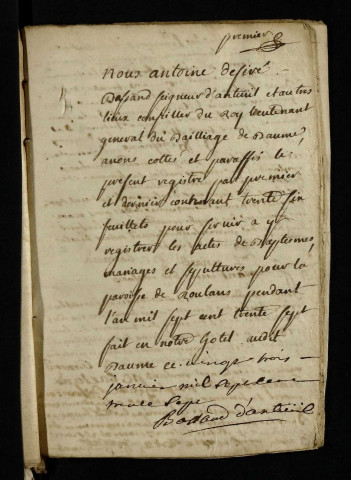 premier
nous antoine desiré
Bassand seigneur d'anteuil et autres
lieux conseiller du Roy lieutenant
general du Bailliage de Baume
avons cottes et paraffés le
present registre par premier
et dernier contenant trente six
feuillets pour servir a y
registrer les actes de Baptesmes,
mariages et sepultures pour la
paroisse de Roulans pendant
l'an mil sept cent trente sept
fait en notre hotel audit
Baume ce vingt trois
janvier mil sept cent
trente sept
Bassand d'anteuil